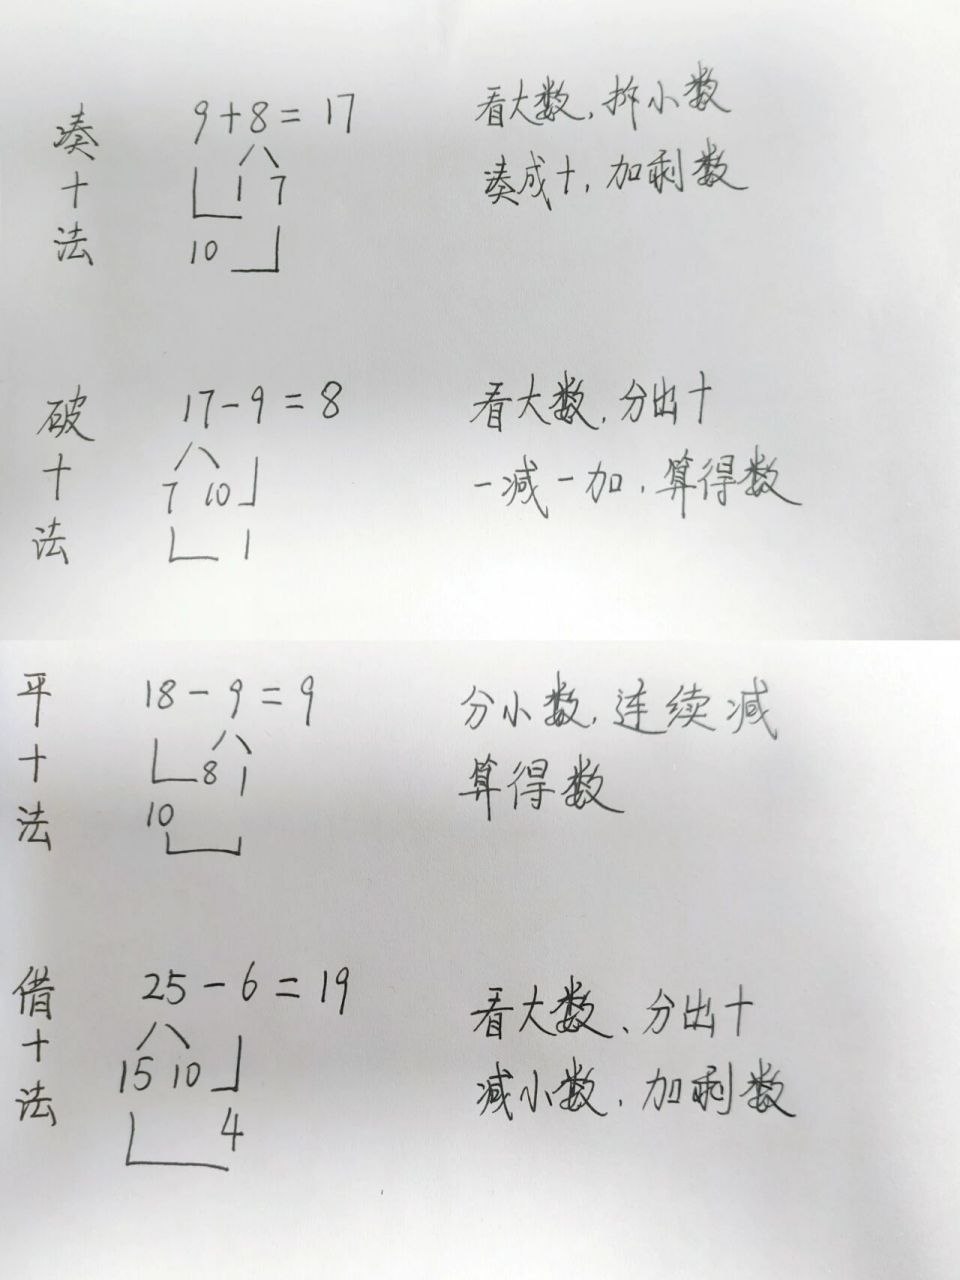 凑十法
9+8=17
1 7
10
看大数,拆小数
凑成十,加剩数
破十法
17-9=8
7 10
1
看大数,分出十
一减一加,算得数
平十法
18-9=9
8 1
10
分小数,连续减
算得数
借十法
25-6=19
15 10
4
看大数、分出十
减小数,加剩数